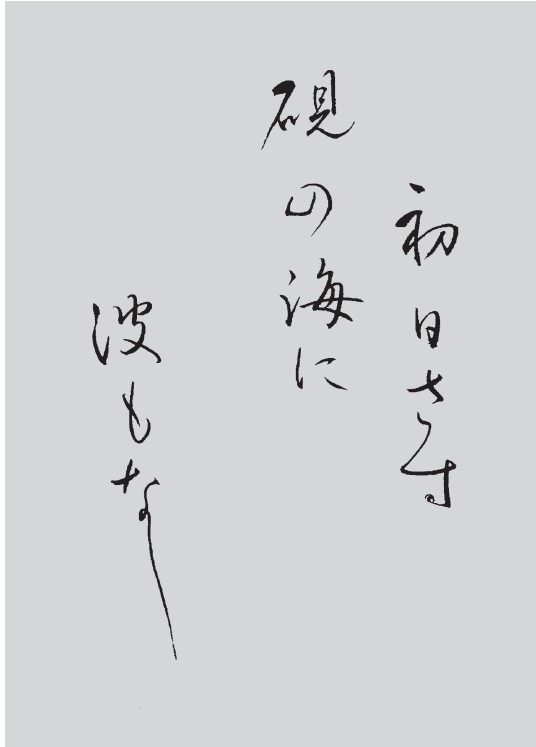 初日さす
硯の海に
波もなし